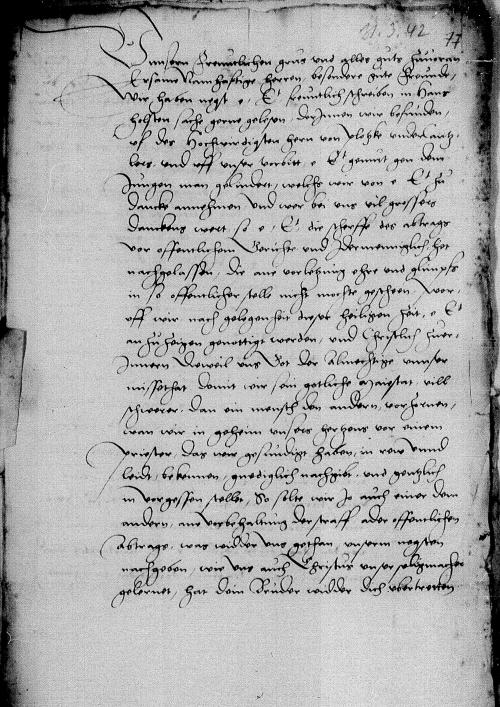 31.3.42 77
Vnsern freuntlichen grus und alles guts zuuoran
Ersame Namhafftige herren, besondere gute freunde,
Wir haben negst e. Et freuntlich schreiben in Hans
holsten sache gerne gelesen, dorinnen wir befinden,
uf des Hochwirdigsten hern von
und uff unser vorbitt e Et gemut gen dem
Jungen man gelindert, welchs wir von e Et zu
dancke annehmen Und wer bei uns vil grossers
danckens wert so e. Et die scherffe des abtrags
vor offentlichem Gerichte und Idermeniglich het
nachgelassen, die ane vorletzung ehre und glimpfs
in so offentlicher stelle nicht mochte gescheen, Wor
uff wir nach gelegenheit dieser heiligen zeit, e Et
anzuzeigen genottigt werden, und Christlich zuer
Innern Dieweil uns Got der Almechtige unser
missethat domit wir sein gotliche Maiestat, vill
schwerer, dan ein mensch den andern, vorzornen,
wan wir in geheim unsers hertzens vor einem
priester, das wir gesundigt haben, in rew unnd
leidt, bekennen, gnediglich nachgibt, und gentzlich
in vorgessen stellt, So solte wir Je auch einer dem
andern, ane vorbehaltung der straff ader offentlichen
abtrags, was widder uns gethan, unserm negsten
nachgeben, wie uns auch Christus unser seligmacher
gelernet, hat dein Bruder widder dich ubertretten